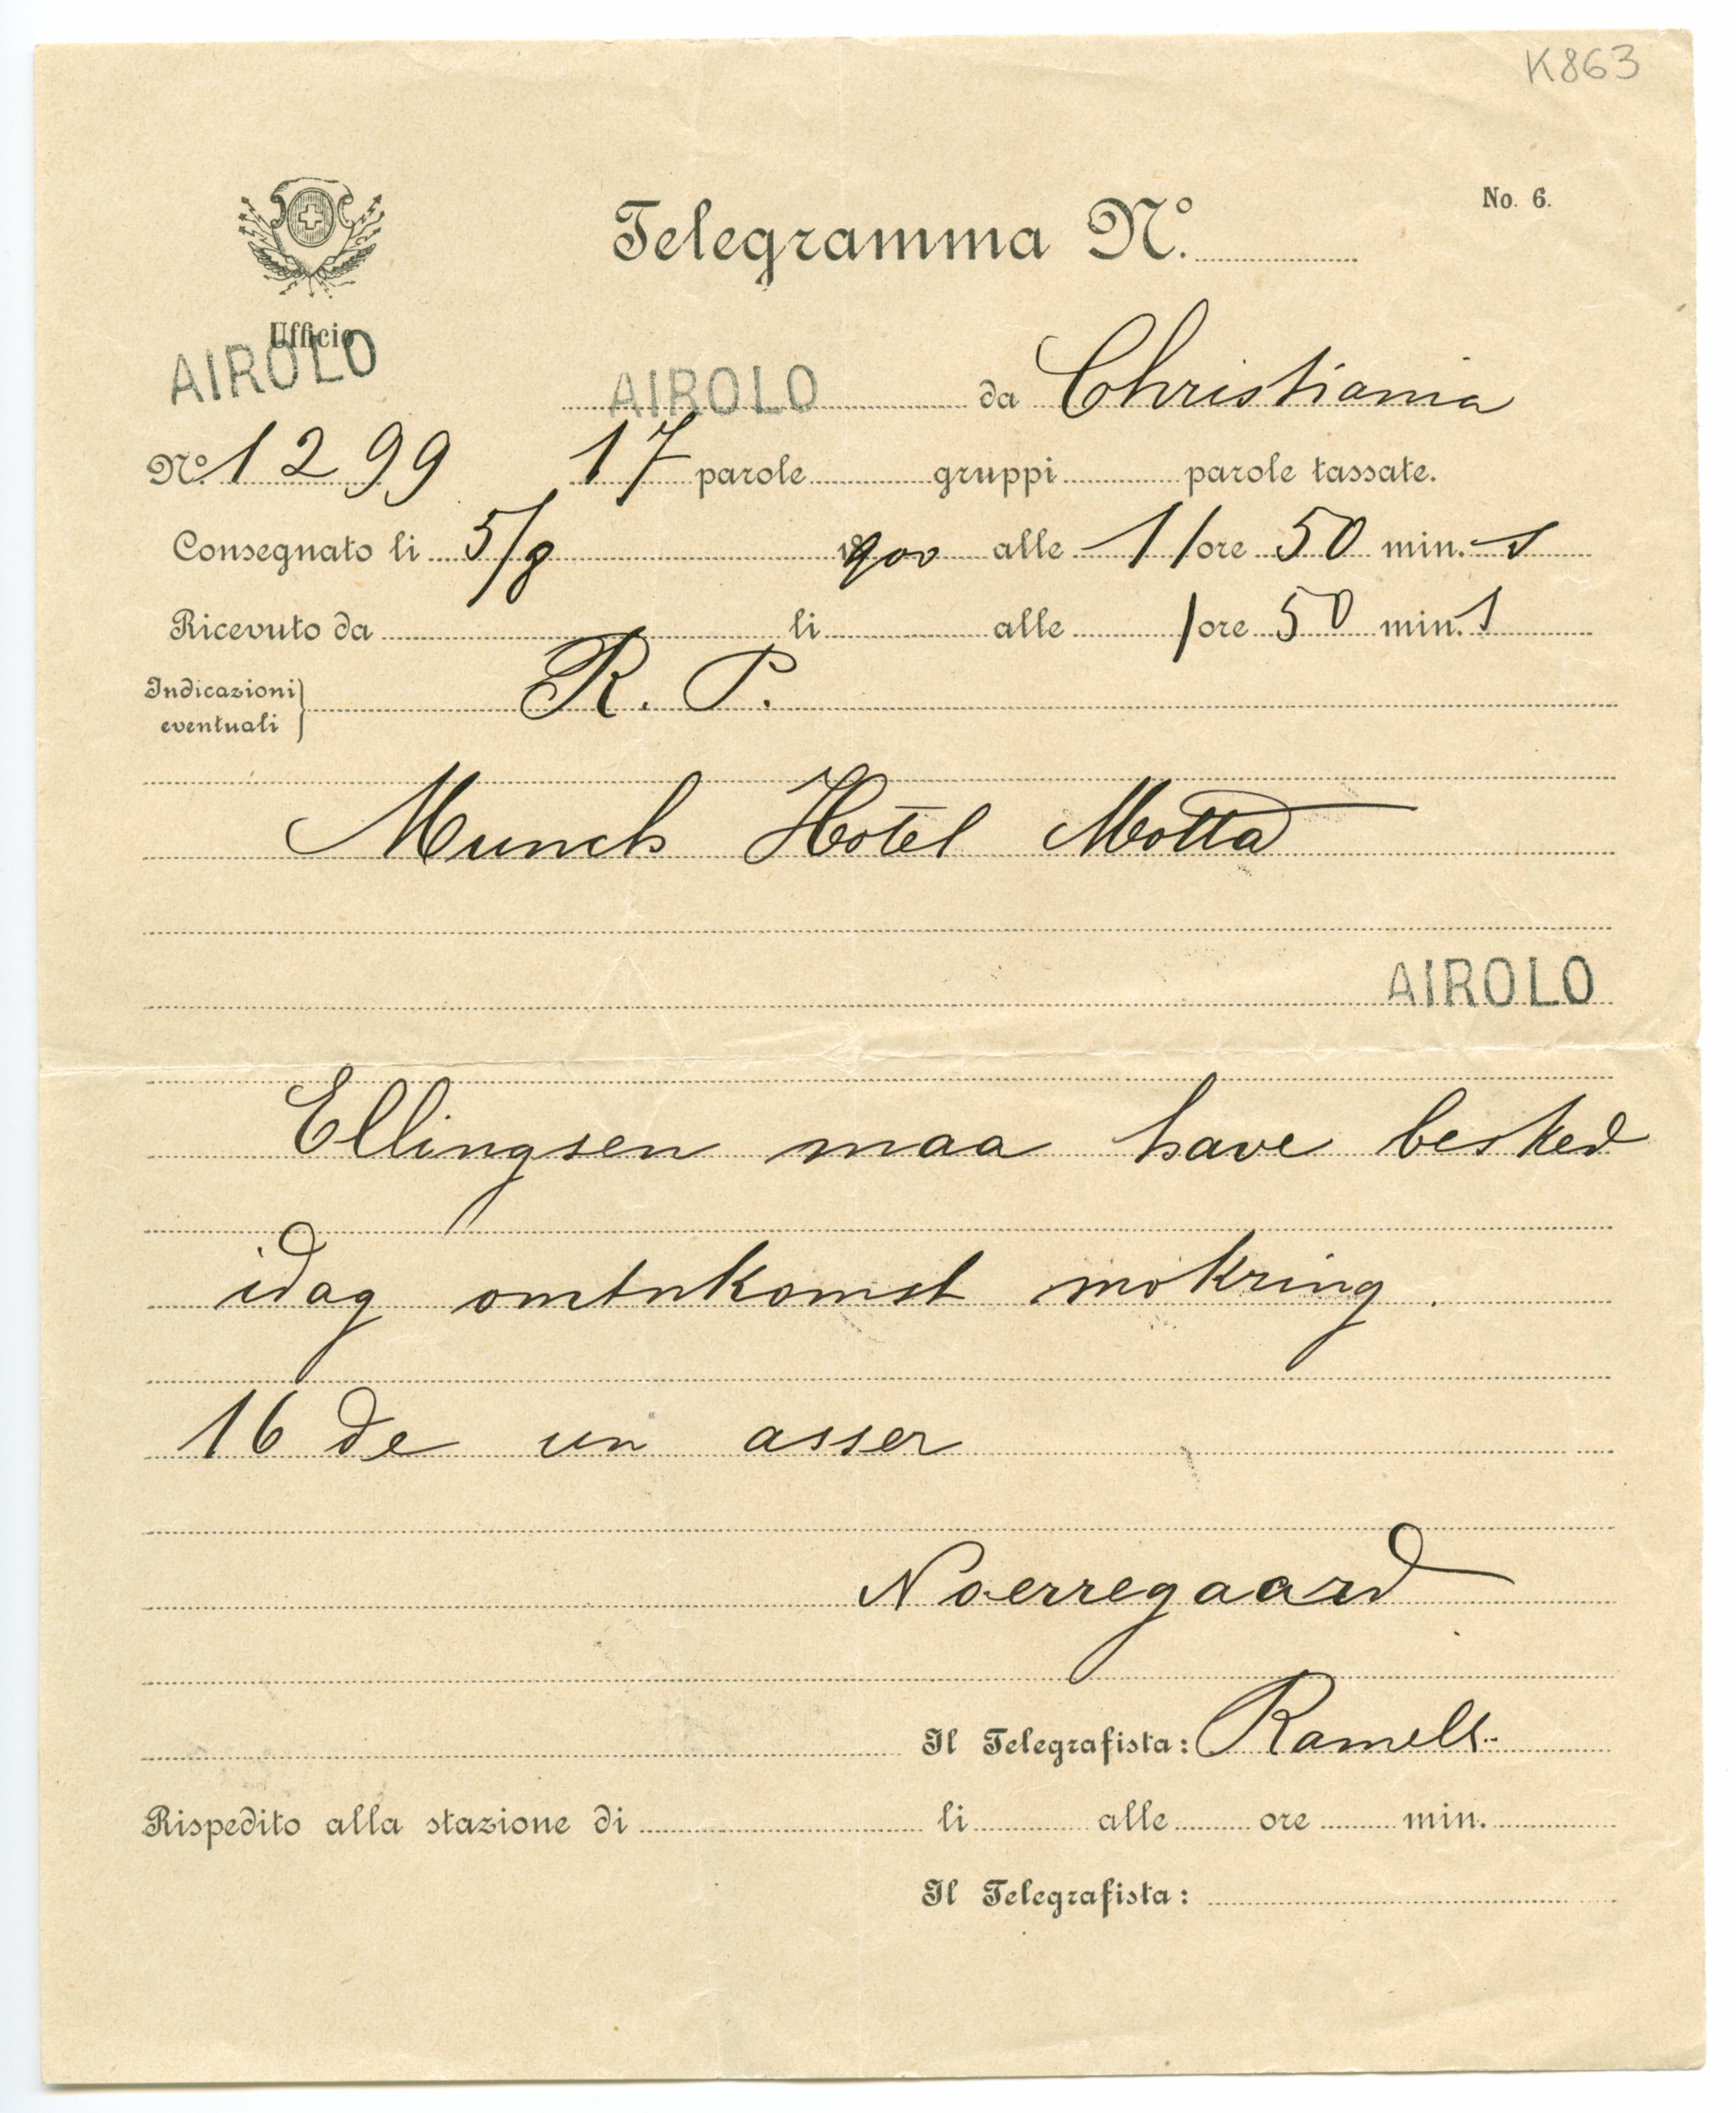 K863
No. 6.
Telegramma Nº.
Ufficio
AIROLO
AIROLO da Christiania
Nº. 1299 17 parole gruppi parole tassate.
Consegnato li 5/8 1900 alle 11 ore 50 min. s
Ricevuto da li alle 1 ore 50 min. s
Indicazioni eventuali } R. P.
Munch Hotel Motta
AIROLO
Ellingsen maa have besked
idag omtnkomst mokring.
16 de un asser
Noerregaard
Il Telegrafista:
Rispedito alla stazione di li alle ore min.
Il Telegrafista: